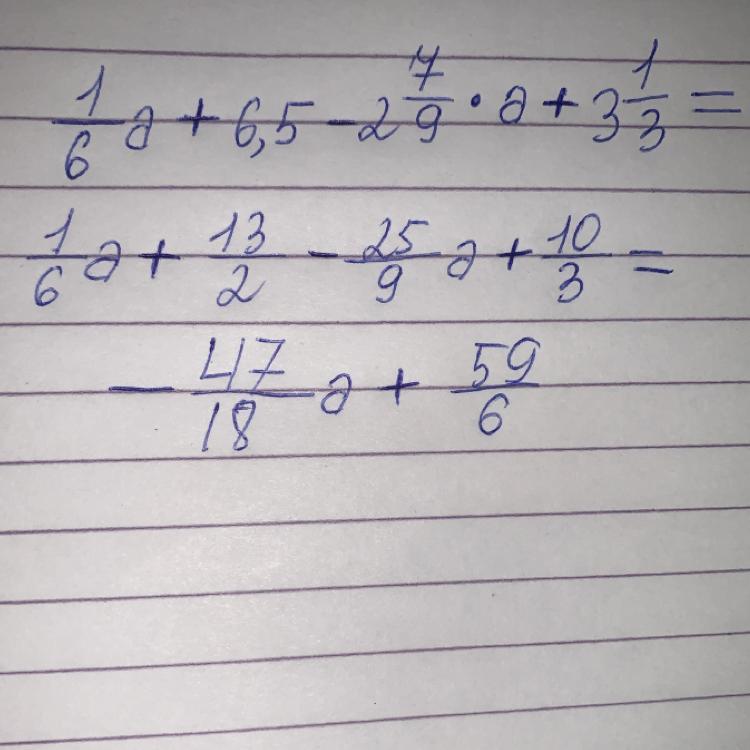 1/6 a + 6,5 - 2 7/9 · a + 3 1/3 =
1/6 a + 13/2 - 25/9 a + 10/3 =
- 47/18 a + 59/6